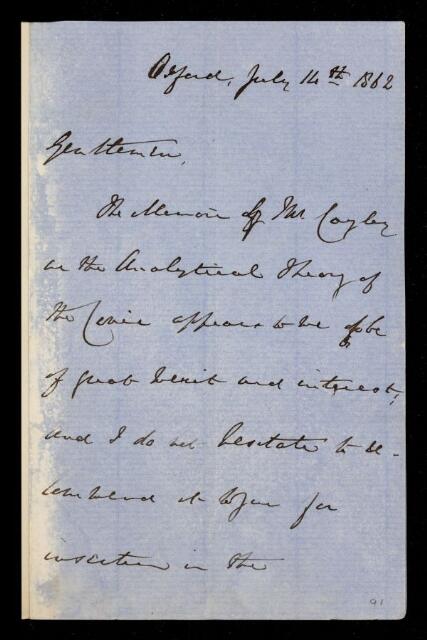 Oxford, July 14th 1862
Gentlemen,
The Memoir of Mr Cayley
on the Analytical Theory of
the Conic appears to me to be
of great merit and interest;
and I do not hesitate to re-
commend it to you for
insertion in the
91